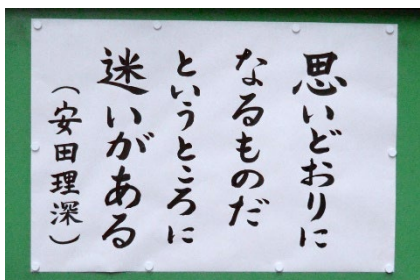 思いどおりに
なるものだ
というところに
迷いがある
（安田理深）